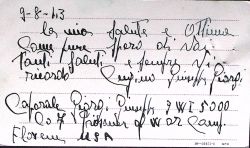 9-8-43
la mia salute è ottima
Come pure spero di voi
Tanti saluti e sempre vi
ricordo
Caporale Giorgi Giuseppe 7 WI 5000
Co 7 Prisoner of War Camp
Florence USA